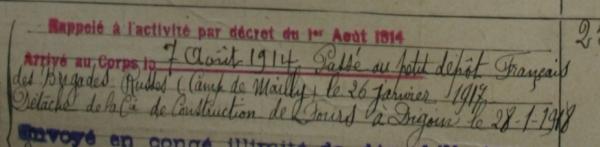 Rappelé à l'activité par décret du 1er Août 1914
Arrivé au Corps le 7 Août 1914. Passé au petit dépôt Français
des Brigades Russes (Camp de Mailly) le 26 janvier 1917
Détaché de la Cie de Construction de Fours à Digoin le 28-1-1918
Envoyé en congé illimité